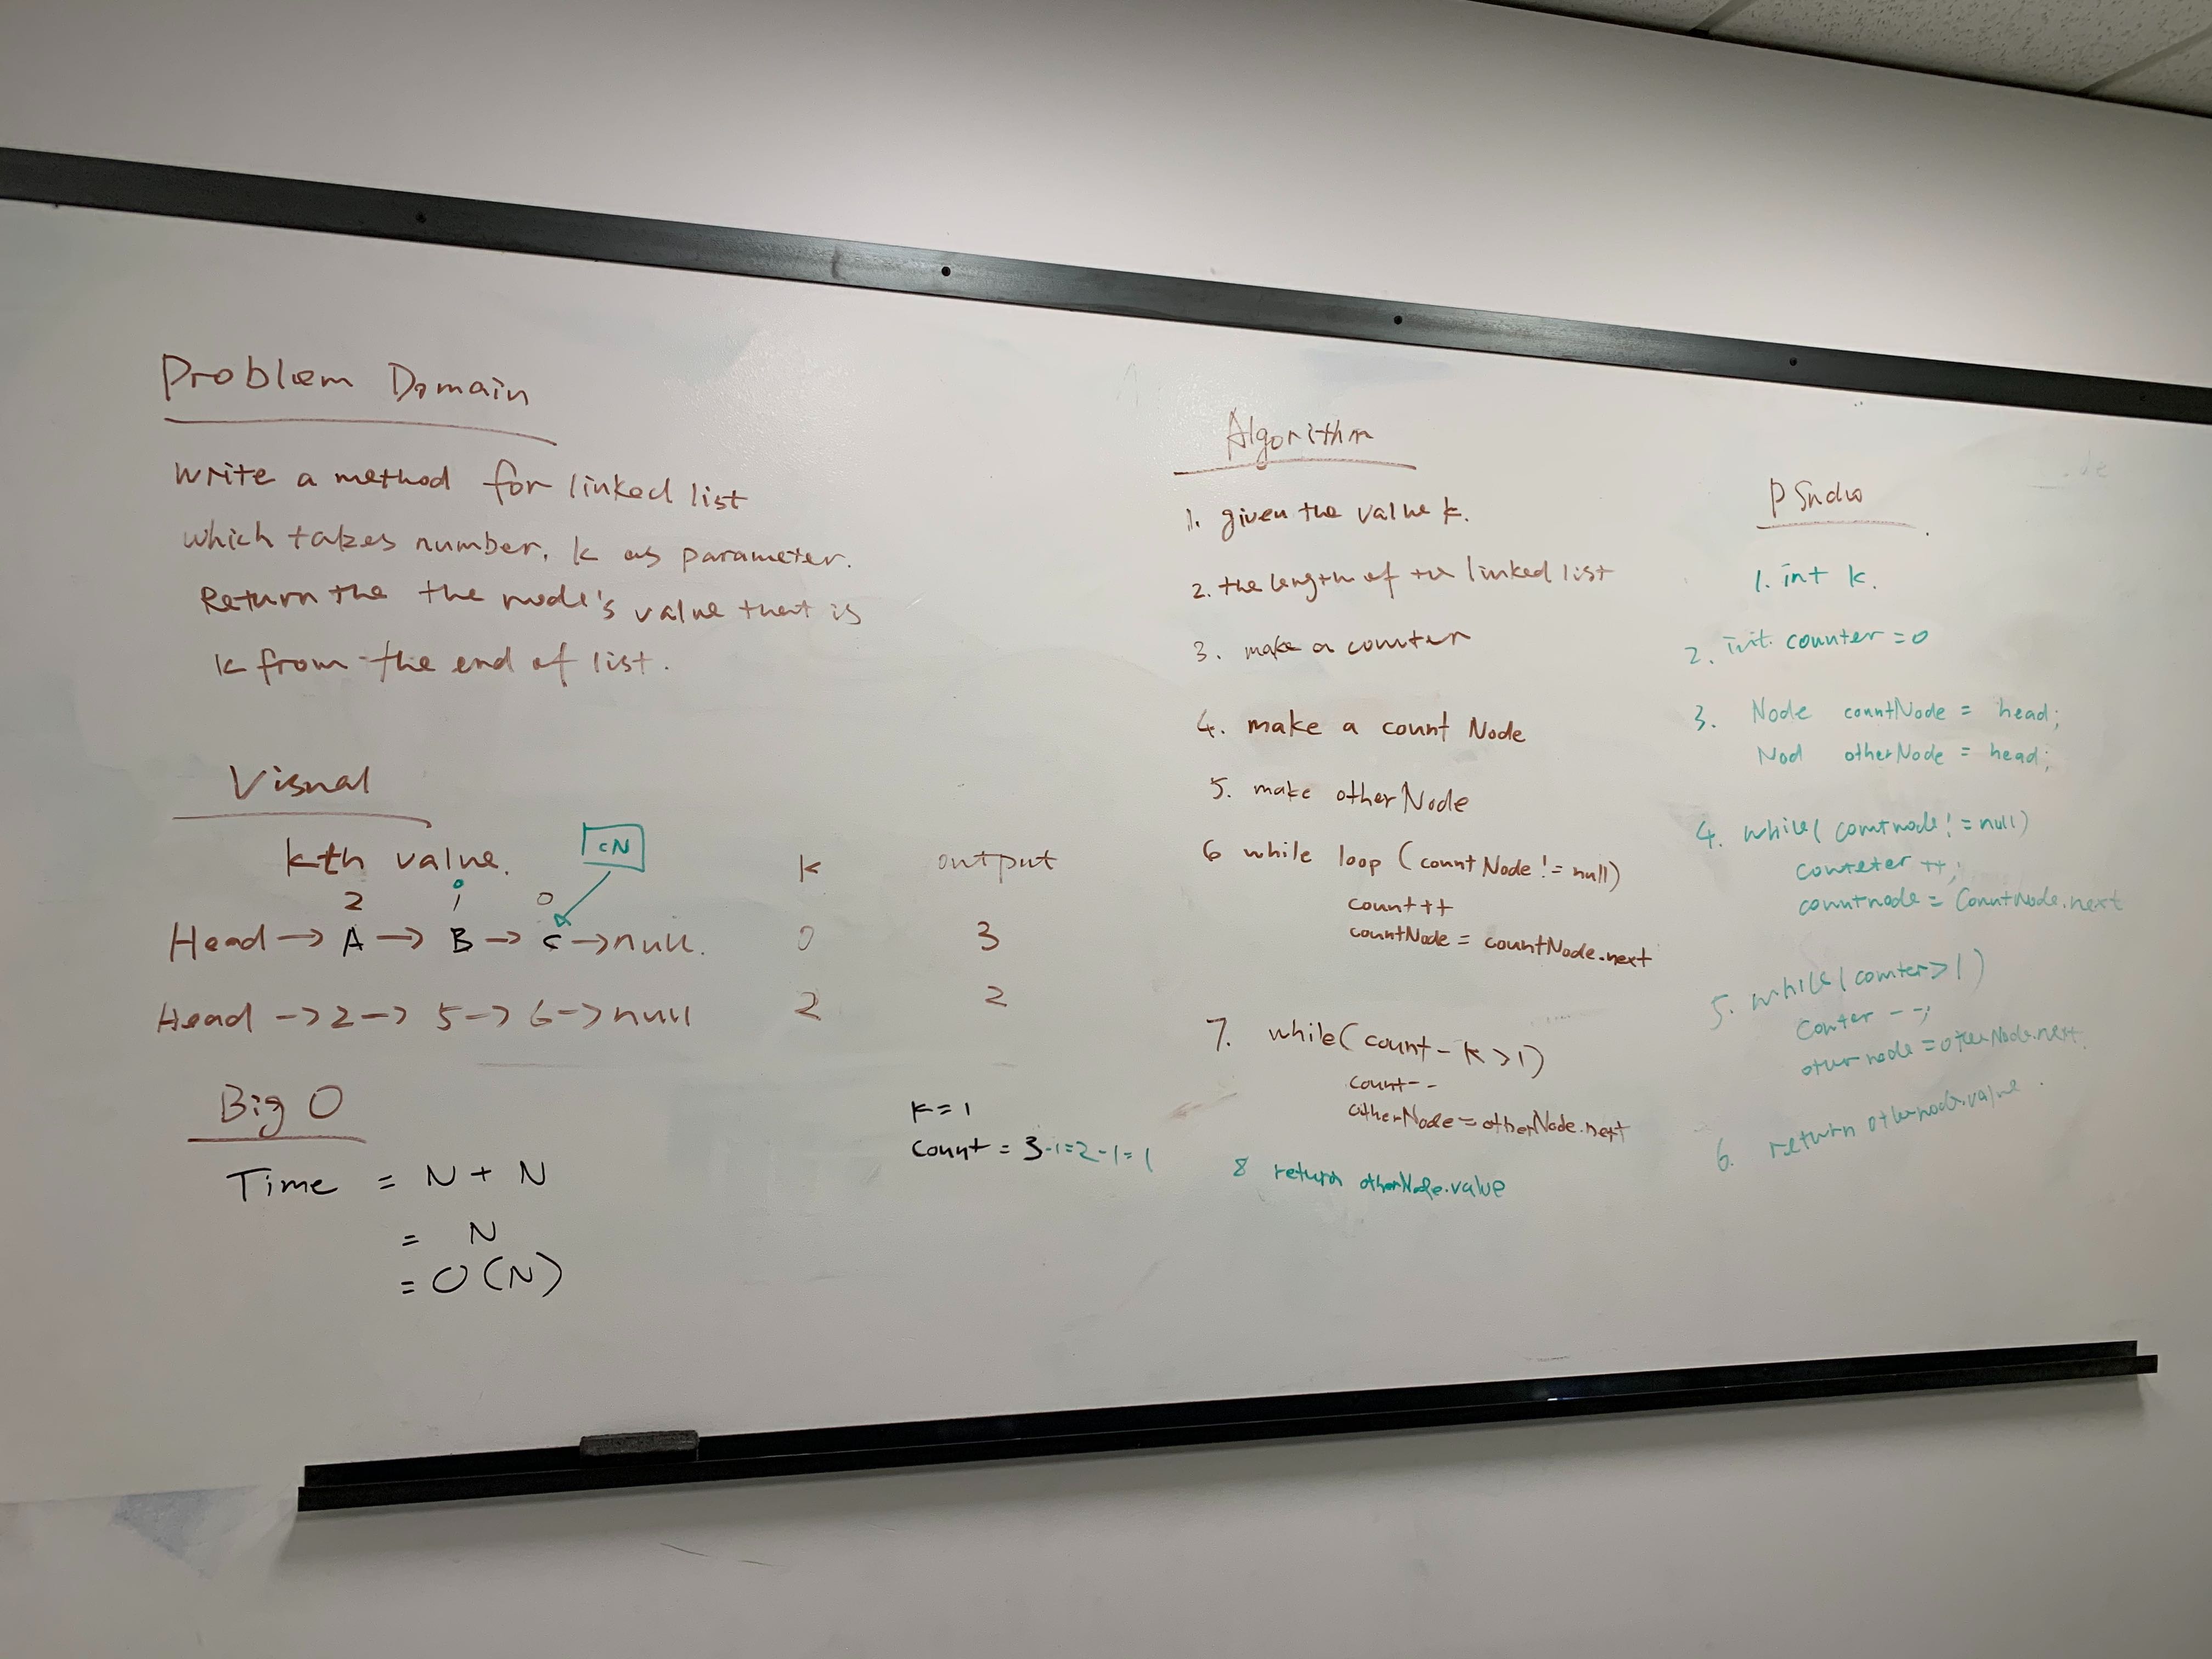 Problem Domain
write a method for linked list
which takes number, k as parameter.
Return the the node's value that is
k from the end of list.
Visual
kth value.
cN
k output
2 1 0
Head -> A -> B -> C -> null. 0 3
Head -> 2 -> 5 -> 6 -> null 2 2
Big O
Time = N + N
= N
= O(N)
k = 1
count = 3-1=2-1=1
Algorithm
1. given the value k.
2. the length of the linked list
3. make a counter
4. make a count Node
5. make otherNode
6 while loop (countNode != null)
count++
countNode = countNode.next
7. while(count - k > 1)
count--
otherNode = otherNode.next
8 return otherNode.value
Psudo
1. int k.
2. int counter = 0
3. Node countNode = head;
Nod otherNode = head;
4. while(countnode != null)
conteter ++;
countnode = CountNode.next
5. while(counter > 1)
Conter --;
othernode = otherNode.next.
6. return othernode.value.